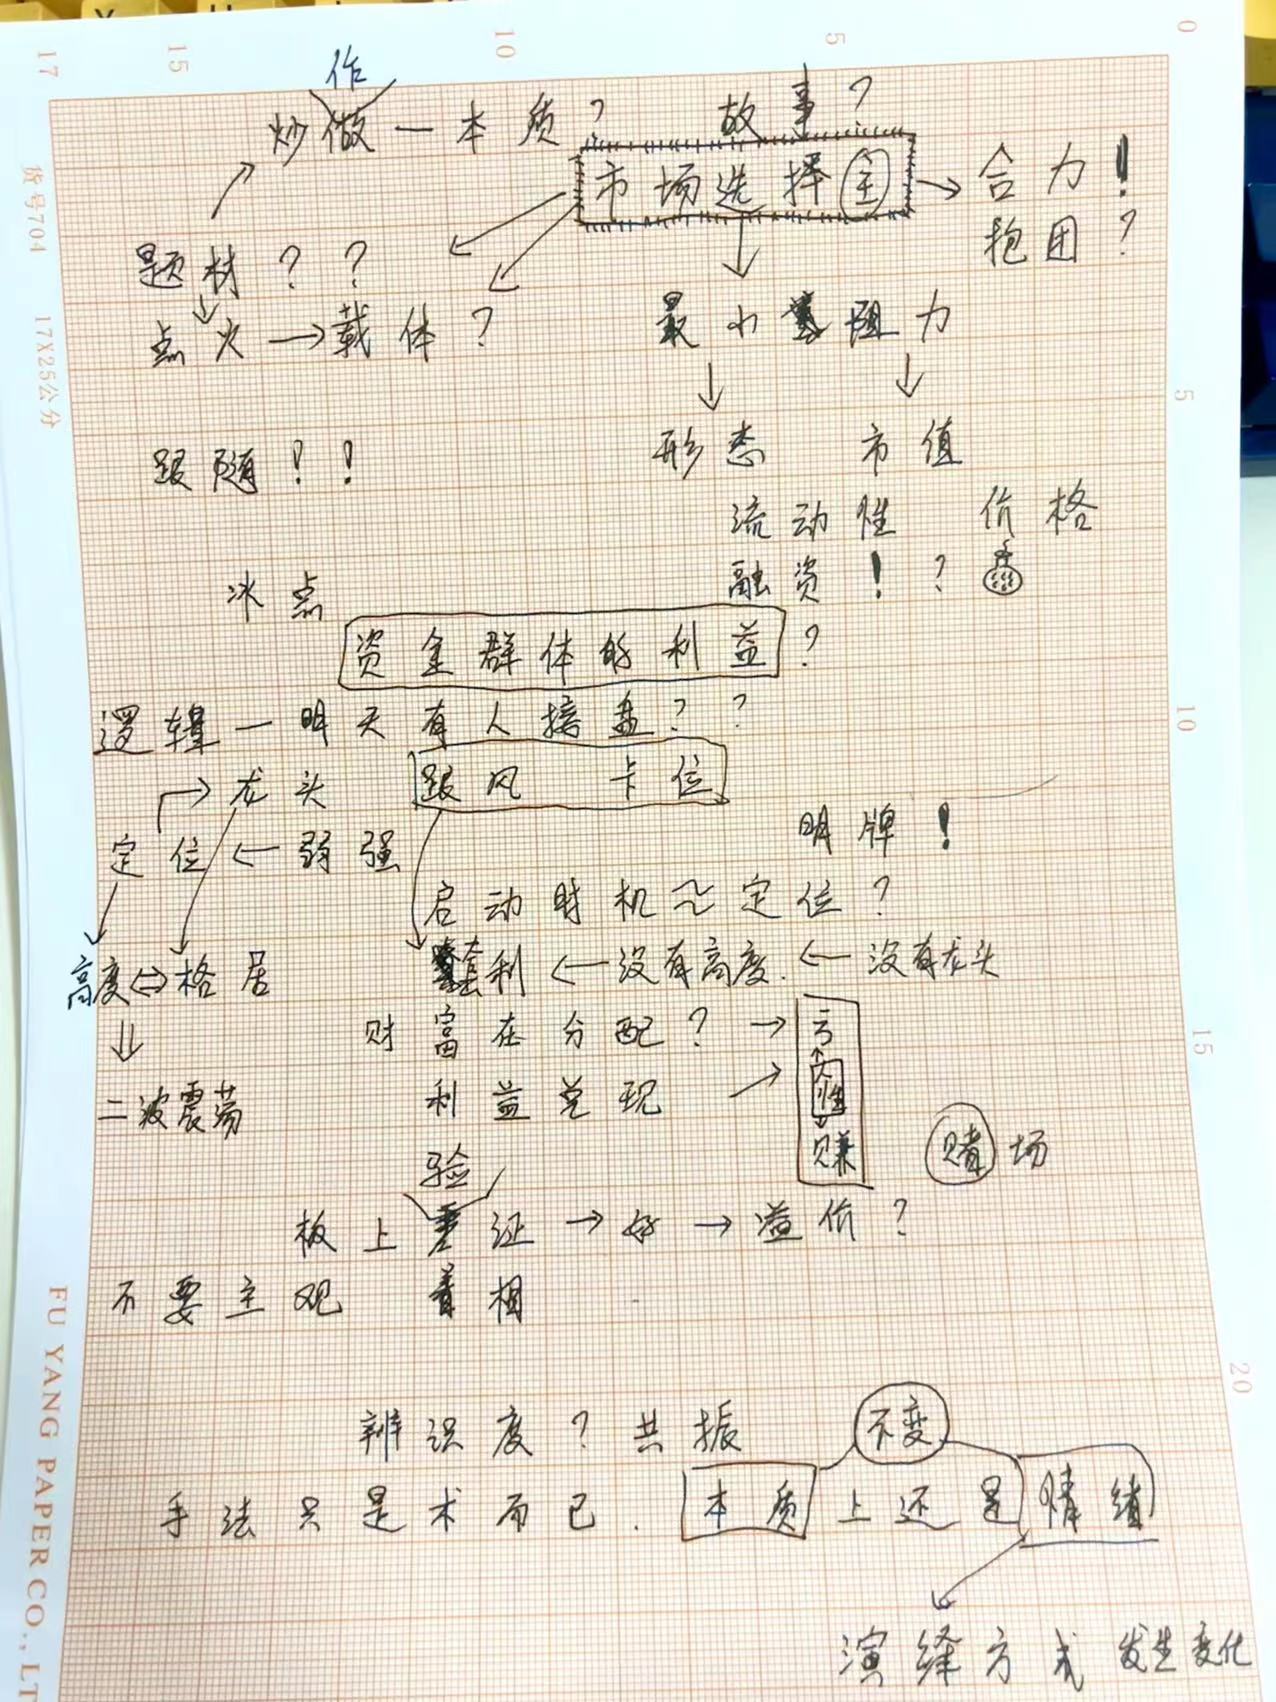 17 15 10 5 0
作
炒做一本质? 故事?
市场选择 → 合力!
抱团?
题材??
点火→载体? 最小阻力
形态 市值
跟随!! 流动性 价格
冰点 融资!?
资金群体的利益?
逻辑一明天有人接盘??
龙头 跟风 卡位
明牌!
定位←弱强
启动时机~定位?
高度⇔格居 套利←没有高度←没有龙头
财富在分配?→亏
人性
二波震荡 利益兑现 赚
赌场
验
板上证→好→溢价?
不要主观 着相
辨识度?共振 不变
手法只是术而已.本质上还是情绪
演绎方式发生变化
货号704 17X25公分
FU YANG PAPER CO., LT
5
10
15
20